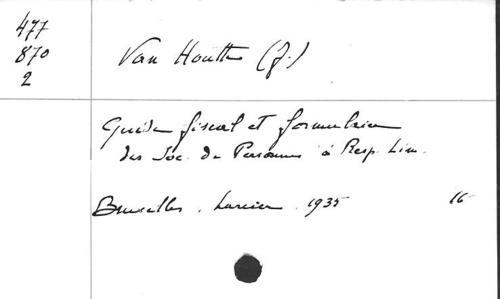 477
870
2
Van Houtte (J.)
Guide fiscal et formulaire
des Soc. de Personnes à Resp. Lim.
Bruxelles. Larcier. 1935 16